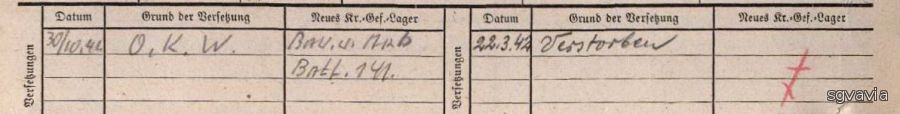 Datum Grund der Versetzung Neues Kr.-Gef.-Lager Datum Grund der Versetzung Neues Kr.-Gef.-Lager
Versetzungen
30/10.41 O.K.W. Bau. u. Arb
Batt. 141.
Versetzungen
22.3.42 Verstorben
sgvavia